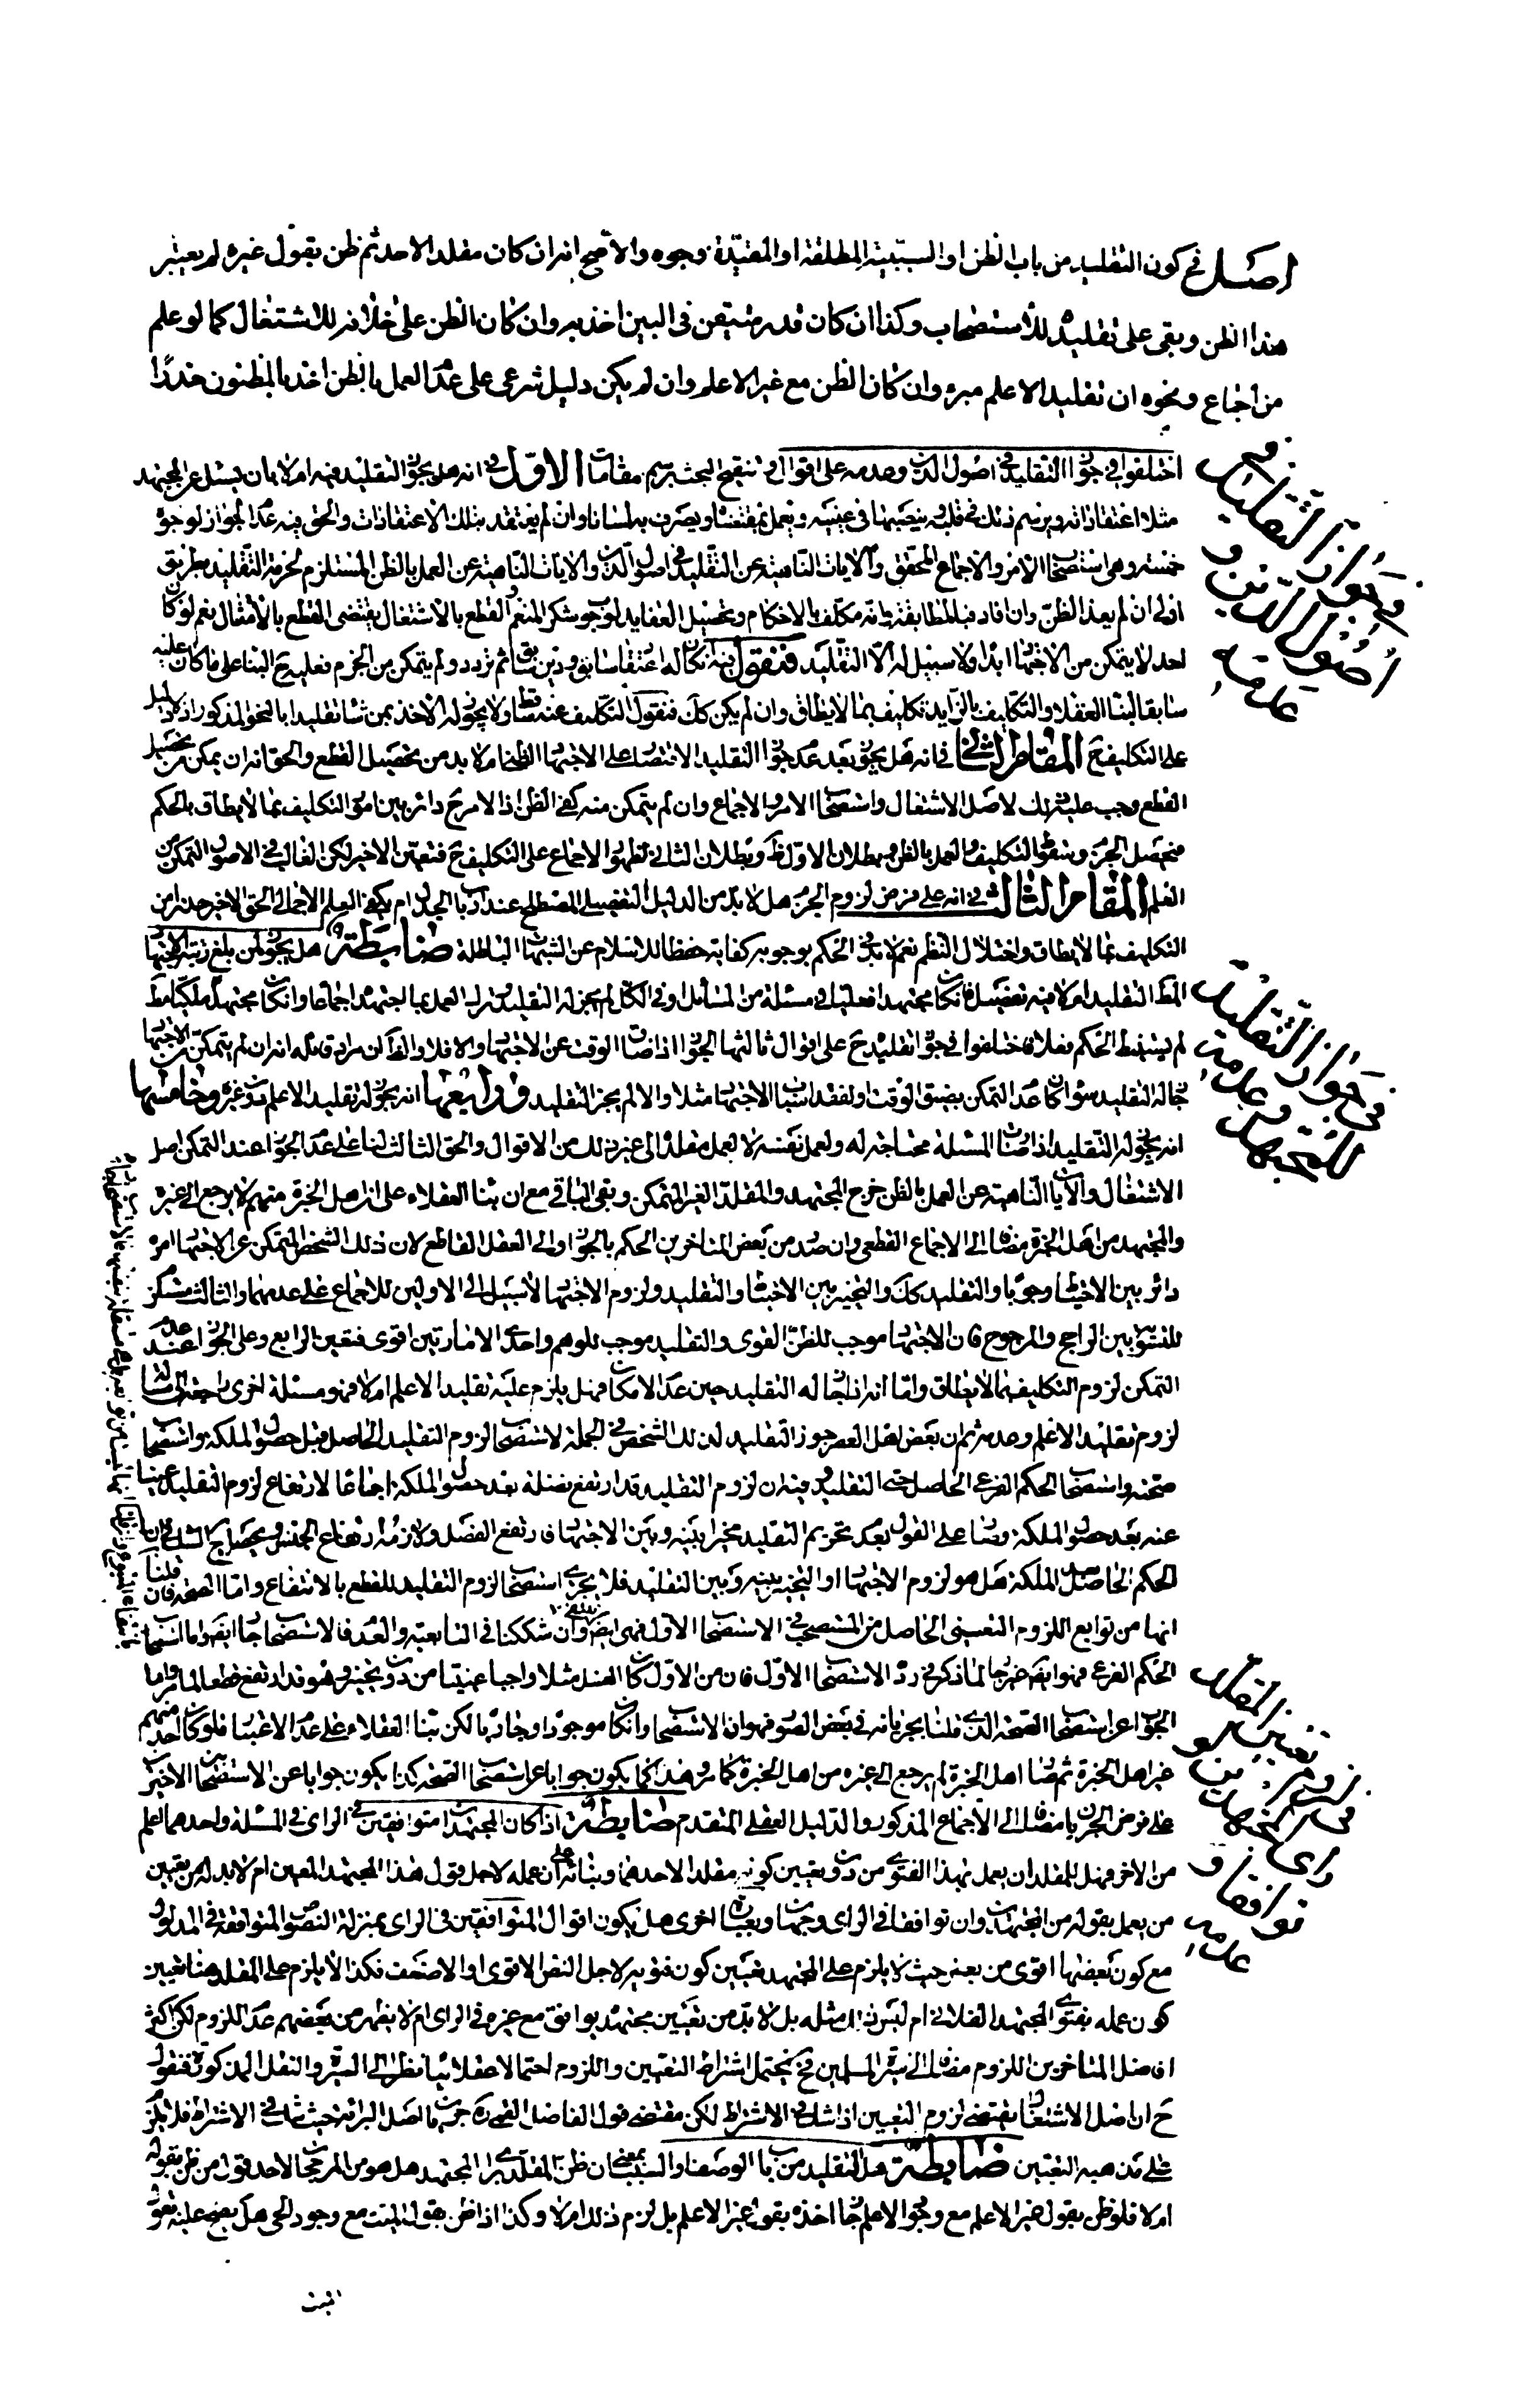 اصل في كون التقليد من باب الظن او السببية المطلقة او المقيدة وجوه والاصح انه ان كان مقلد الاحد ثم ظن بقول غيره لم يعتبر
هذا الظن وبقى على تقليده للاستصحاب وكذا ان كان قدر متيقن في البين اخذ به وان كان الظن على خلافه للاشتغال كما لو علم
من اجماع ونحوه ان تقليد الاعلم مبرء وان كان الظن مع غير الاعلم وان لم يكن دليل شرعى على عدم العمل بالظن اخذ بالمظنون حذرا
اختلفوا في جواز التقليد في اصول الدين وعدمه على اقوال و تنقيح البحث يرسم مقامات الاول في انه هل يجوز التقليد فيه ام لا بان يسئل عن المجتهد
مثلا اعتقاداته ويرسم ذلك في قلبه وان لم يعتقد بتلك الاعتقادات والحق فيه عدم الجواز لوجوه
خمسة وهى استصحاب الامر والاجماع المحقق والايات الناهية عن التقليد في اصول الدين والايات الناهية عن العمل بالظن المستلزم لحرمة التقليد بطريق
اولى ان لم يفد الظن وان افاد فبالمطابقة بانه مكلف بالاحكام وتحصيل العقايد لوجوب شكر المنعم والقطع بالاشتغال يقتضى القطع بالامتثال نعم لو كان
احد لا يتمكن من الاجتهاد ابدا ولا سبيل له الا التقليد فنقول فيه ان كان له اعتقاد سابق ودين سابق ثم تردد ولم يتمكن من الجزم فعليه ح البناء على ما كان عليه
سابقا لبناء العقلاء والتكليف بالزايد تكليف بما لا يطاق وان لم يكن كك فنقول التكليف عنه ساقط ولا يجوز له الاخذ بمن شاء تقليدا بالنحو المذكور اذ لا دليل
على التكليف ح المقام الثاني في انه هل يجوز بعد عدم جواز التقليد الاقتصار على الاجتهاد الظني ام لا بد من تحصيل القطع والحق انه ان يمكن من تحصيل
القطع وجب عليه ذلك لاصل الاشتغال واستصحاب الامر والاجماع وان لم يتمكن منه كفى الظن اذ الامر ح دائر بين امور التكليف بما لا يطاق بالحكم
بتحصيل الجزم وسقوط التكليف والعمل بالظن وبطلان الاول ظ وبطلان الثاني لظهور الاجماع على التكليف ح فتعين الاخير لكن الغالب في الاصول التمكن من
العلم المقام الثالث في انه على فرض لزوم الجزم هل لا بد من الدليل التفصيلي المصطلح عند ارباب الجدل ام يكفى العلم الاجمالي الحق الاخير حذرا من
التكليف بما لا يطاق واختلال النظم نعم لا بد في الحكم بوجوبه كفاية حفظا للاسلام عن الشبهات الباطلة ضابطة هل يجوز لمن بلغ رتبة الاجتهاد
المط التقليد ام لا فيه تفصيل فان كان مجتهدا فعليا في مسئلة من المسائل او في الكل لم يجز له التقليد وترك العمل بما اجتهد اجماعا وان كان مجتهدا ملكيا مط
لم يستنبط الحكم فعلا فاختلفوا في جواز تقليده ح على اقوال ثالثها الجواز اذا ضاق الوقت عن الاجتهاد والا فلا والظ ان مراد قائله انه ان لم يتمكن من الاجتهاد
جاز له التقليد سواء كان عدم التمكن بضيق الوقت او لفقد اسباب الاجتهاد مثلا والا لم يجز التقليد ورابعها انه يجوز له تقليد الاعلم دون غيره وخامسها
انه يجوز له التقليد اذا كانت المسئلة محتاجة له ولعمل نفسه لا لعمل مقلده الى غير ذلك من الاقوال والحق الثالث لنا على عدم الجواز عند التمكن اصل
الاشتغال والايات الناهية عن العمل بالظن خرج المجتهد والمقلد الغير المتمكن وبقى الباقي مع ان بناء العقلاء على ان اهل الخبرة منهم لا يرجع الى غيره
والمجتهد من اهل الخبرة مضافا الى الاجماع القطعى وان صدر من بعض المتاخرين الحكم بالجواز والى العقل القاطع لان ذلك الشخص المتمكن عن الاجتهاد امره
دائر بين الاحتياط وجوبا والتقليد كك والتخيير بين الاجتهاد والتقليد ولزوم الاجتهاد لا سبيل الى الاولين للاجماع على عدمهما والثالث مستلزم
للتسوية بين الراجح والمرجوح فان الاجتهاد موجب للظن القوى والتقليد موجب للوهم واحدى الامارتين اقوى فتعين الرابع وعلى الجواز عند عدم
التمكن لزوم التكليف بما لا يطاق واما انه اذا جاز له التقليد حين عدم الامكان فهل يلزم عليه تقليد الاعلم ام لا فهو مسئلة اخرى
لزوم تقليد الاعلم وعدمه ثم ان بعض اهل العصر جوز التقليد لذلك الشخص في الجملة لاستصحاب لزوم التقليد الحاصل قبل حصول الملكة واستصحاب
صحته واستصحاب الحكم الفرعى الحاصل حين التقليد وفيه ان لزوم التقليد قد ارتفع بفصله بعد حصول الملكة اجماعا لارتفاع لزوم التقليد عينا
عنه بعد حصول الملكة وصار على القول بعدم تحريم التقليد مخيرا بينه وبين الاجتهاد فارتفع الفصل ولازمه ارتفاع الجنس ويحصل ح الشك في ان
الحكم الحاصل بعد الملكة هل هو لزوم الاجتهاد او التخيير بينه وبين التقليد فلا يجرى استصحاب لزوم التقليد للقطع بالانتفاع واما الصحة فان قلنا
انها من توابع اللزوم التعييني الحاصل في المستصحب في الاستصحاب الاول فهى ايضا وان شككنا في التابعية والعدم فالاستصحاب جار ايضا واما استصحاب
الحكم الفرعى فهو ايضا غير جار لما ذكر في رد الاستصحاب الاول فان من الاول كان الغسل مثلا واجبا عينيا من دون تخيير وهو قد ارتفع قطعا لما مر واما
الجواب عن استصحاب الصحة الذي قلنا بجريانه في بعض الصور فهو ان الاستصحاب وان كان موجودا وجاريا لكن بناء العقلاء على عدم الاعتبار فلو كان احد منهم
غير اهل الخبرة ثم صار اهل الخبرة لم يرجع الى غيره من اهل الخبرة كما مر وهذا كما يكون جوابا عن استصحاب الصحة كذا يكون جوابا عن الاستصحابين الاخيرين
على فرض الجريان مضافا الى الاجماع المذكور والدليل العقلى المتقدم ضابطة اذا كان المجتهدان متوافقين في الراى في المسئلة واحدهما اعلم
من الاخر فهل للمقلد ان يعمل بهذا الفتوى من دون تعيين كونه مقلدا لاحدهما وبنائه على ان عمله لاجل قول هذا المجتهد المعين ام لا بد له من تعيين
من يعمل بقوله من المجتهدين وان توافقا في الراى وجهان وبعبارة اخرى هل يكون اقوال المتوافقين في الراى بمنزلة النصوص المتوافقة في المدلول
مع كون بعضها اقوى من بعض حيث لا يلزم على المجتهد تعيين كون فتويه لاجل النص الاقوى او الاضعف فكذا لا يلزم على المقلد هنا تعيين
كون عمله بفتوى المجتهد الفلاني ام ليس مثله بل لا بد من تعيين مجتهد يوافق مع غيره في الراى ام لا يظهر من بعضهم عدم اللزوم لكن اكثر
افاضل المتاخرين اللزوم مضافا الى سيرة المسلمين فح يحتمل اشتراط التعيين واللزوم احتمالا عقلائيا نظرا الى السيرة والنقل المذكورة فنقول
ح ان اصل الاشتغال يقتضى لزوم التعيين اذا شك في الاشتراط لكن مقتضى قول الفاضل القمى ره جريان اصل البرائة حيث شك في الاشتراط فلا يلزم
على مذهبه التعيين ضابطة هل التقليد من باب الوصف او السبب بمعنى ان ظن المقلد براى المجتهد هل هو من المرجحات لاحد قول من ظن بقوله
ام لا فلو ظن بقول غير الاعلم مع وجود الاعلم جاز اخذه بقول غير الاعلم بل لزم ذلك ام لا وكذا اذا ظن بقول الميت مع وجود الحى هل يصح عليه تقويه
الميت
في جواز التقليد في
اصول الدين و
عدمه
في جواز التقليد
للمجتهد وعدمه
في لزوم تعيين المقلد
من المجتهدين لو
توافقا في الراى و
عدمه